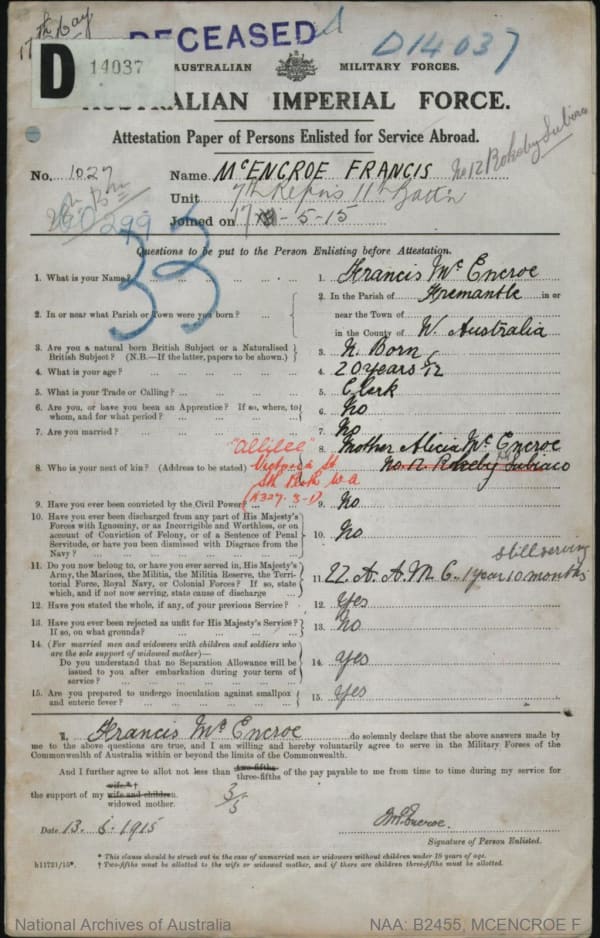 17th Bay
DECEASED
D 14037
D14037
AUSTRALIAN MILITARY FORCES.
AUSTRALIAN IMPERIAL FORCE.
Attestation Paper of Persons Enlisted for Service Abroad.
No. 1027 Name McENCROE FRANCIS
No 12 Rokeby Subiaco
Unit 7th Reprs 11th Batt'n
Joined on 17-5-15
33
Questions to be put to the Person Enlisting before Attestation.
1. What is your Name? ... ... ... ... 1. Francis McEncroe
2. In or near what Parish or Town were you born? ... 2. In the Parish of Fremantle in or
near the Town of
in the County of W. Australia
3. Are you a natural born British Subject or a Naturalised
British Subject? (N.B.—If the latter, papers to be shown.) 3. N. Born
4. What is your age? ... ... ... ... 4. 20 years 5/12
5. What is your Trade or Calling? ... ... ... 5. Clerk
6. Are you, or have you been an Apprentice? If so, where, to
whom, and for what period? ... ... ... 6. No
7. Are you married? ... ... ... ... 7. No
8. Who is your next of kin? (Address to be stated) 8. Mother Alicia McEncroe
No 12 Rokeby Rd Subiaco
"Allilee"
Victoria St.
Sth Perth W.A
9. Have you ever been convicted by the Civil Power? 9. No
10. Have you ever been discharged from any part of His Majesty's
Forces with Ignominy, or as Incorrigible and Worthless, or on
account of Conviction of Felony, or of a Sentence of Penal
Servitude, or have you been Dismissed with Disgrace from the
Navy? ... ... ... ... 10. No
11. Do you now belong to, or have you ever served in, His Majesty's
Army, the Marines, the Militia, the Militia Reserve, the Terri-
torial Force, Royal Navy, or Colonial Forces? If so, state
which, and if not now serving, state cause of discharge ... 11. 22. A. A. M. C. 1 year 10 months
still serving
12. Have you stated the whole, if any, of your previous Service? 12. Yes
13. Have you ever been rejected as unfit for His Majesty's Service?
If so, on what grounds? ... ... ... 13. No
14. (For married men and widowers with children and soldiers who
are the sole support of widowed mother)—
Do you understand that no Separation Allowance will be
issued to you after embarkation during your term of
service? ... ... ... ... 14. Yes
15. Are you prepared to undergo inoculation against smallpox
and enteric fever? ... ... ... 15. Yes
I, Francis McEncroe do solemnly declare that the above answers made by
me to the above questions are true, and I am willing and hereby voluntarily agree to serve in the Military Forces of the
Commonwealth of Australia within or beyond the limits of the Commonwealth.
And I further agree to allot not less than two-fifths
three-fifths of the pay payable to me from time to time during my service for
the support of my wife.* †
wife and children.
widowed mother. 3/5
Date 13. 5. 1915 FMcEncroe.
Signature of Person Enlisted.
* This clause should be struck out in the case of unmarried men or widowers without children under 18 years of age.
† Two-fifths must be allotted to the wife or widowed mother, and if there are children three-fifths must be allotted.
b11721/15*.
National Archives of Australia NAA: B2455, MCENCROE F